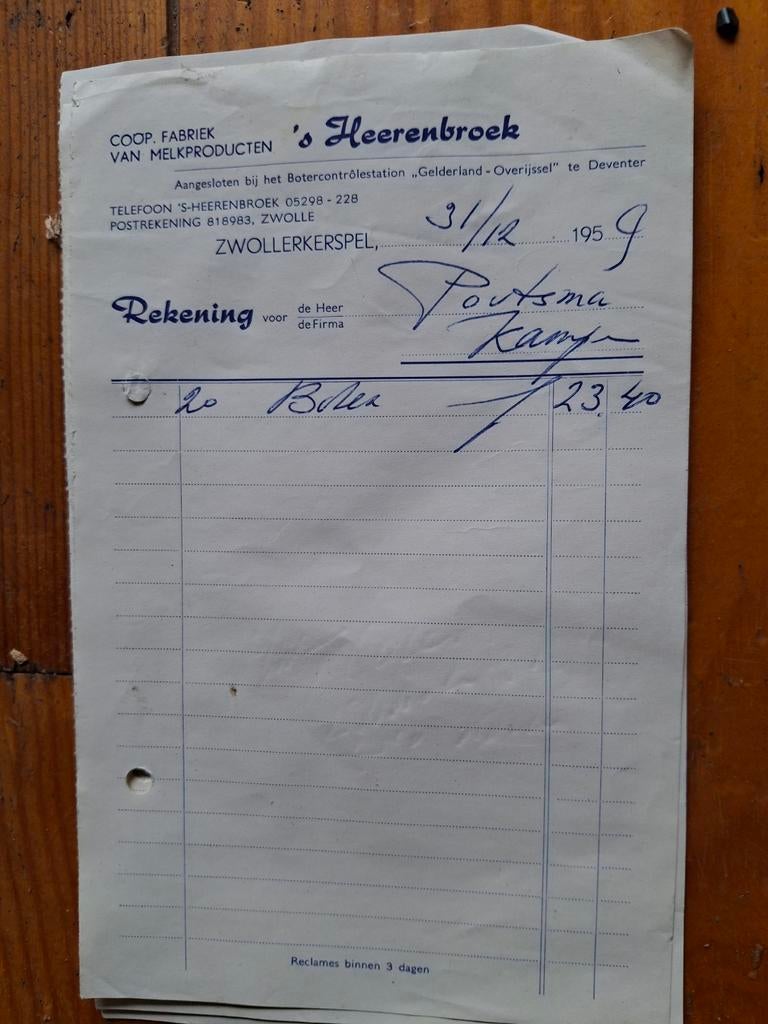 COÖP. FABRIEK
VAN MELKPRODUCTEN 's Heerenbroek
Aangesloten bij het Botercontrôlestation „Gelderland - Overijssel” te Deventer
TELEFOON 'S-HEERENBROEK 05298 - 228
POSTREKENING 818983, ZWOLLE
ZWOLLERKERSPEL, 31/12 1959
Rekening voor de Heer
de Firma
Poutsma
Kampen
20 Boter 23,40
Reclames binnen 3 dagen